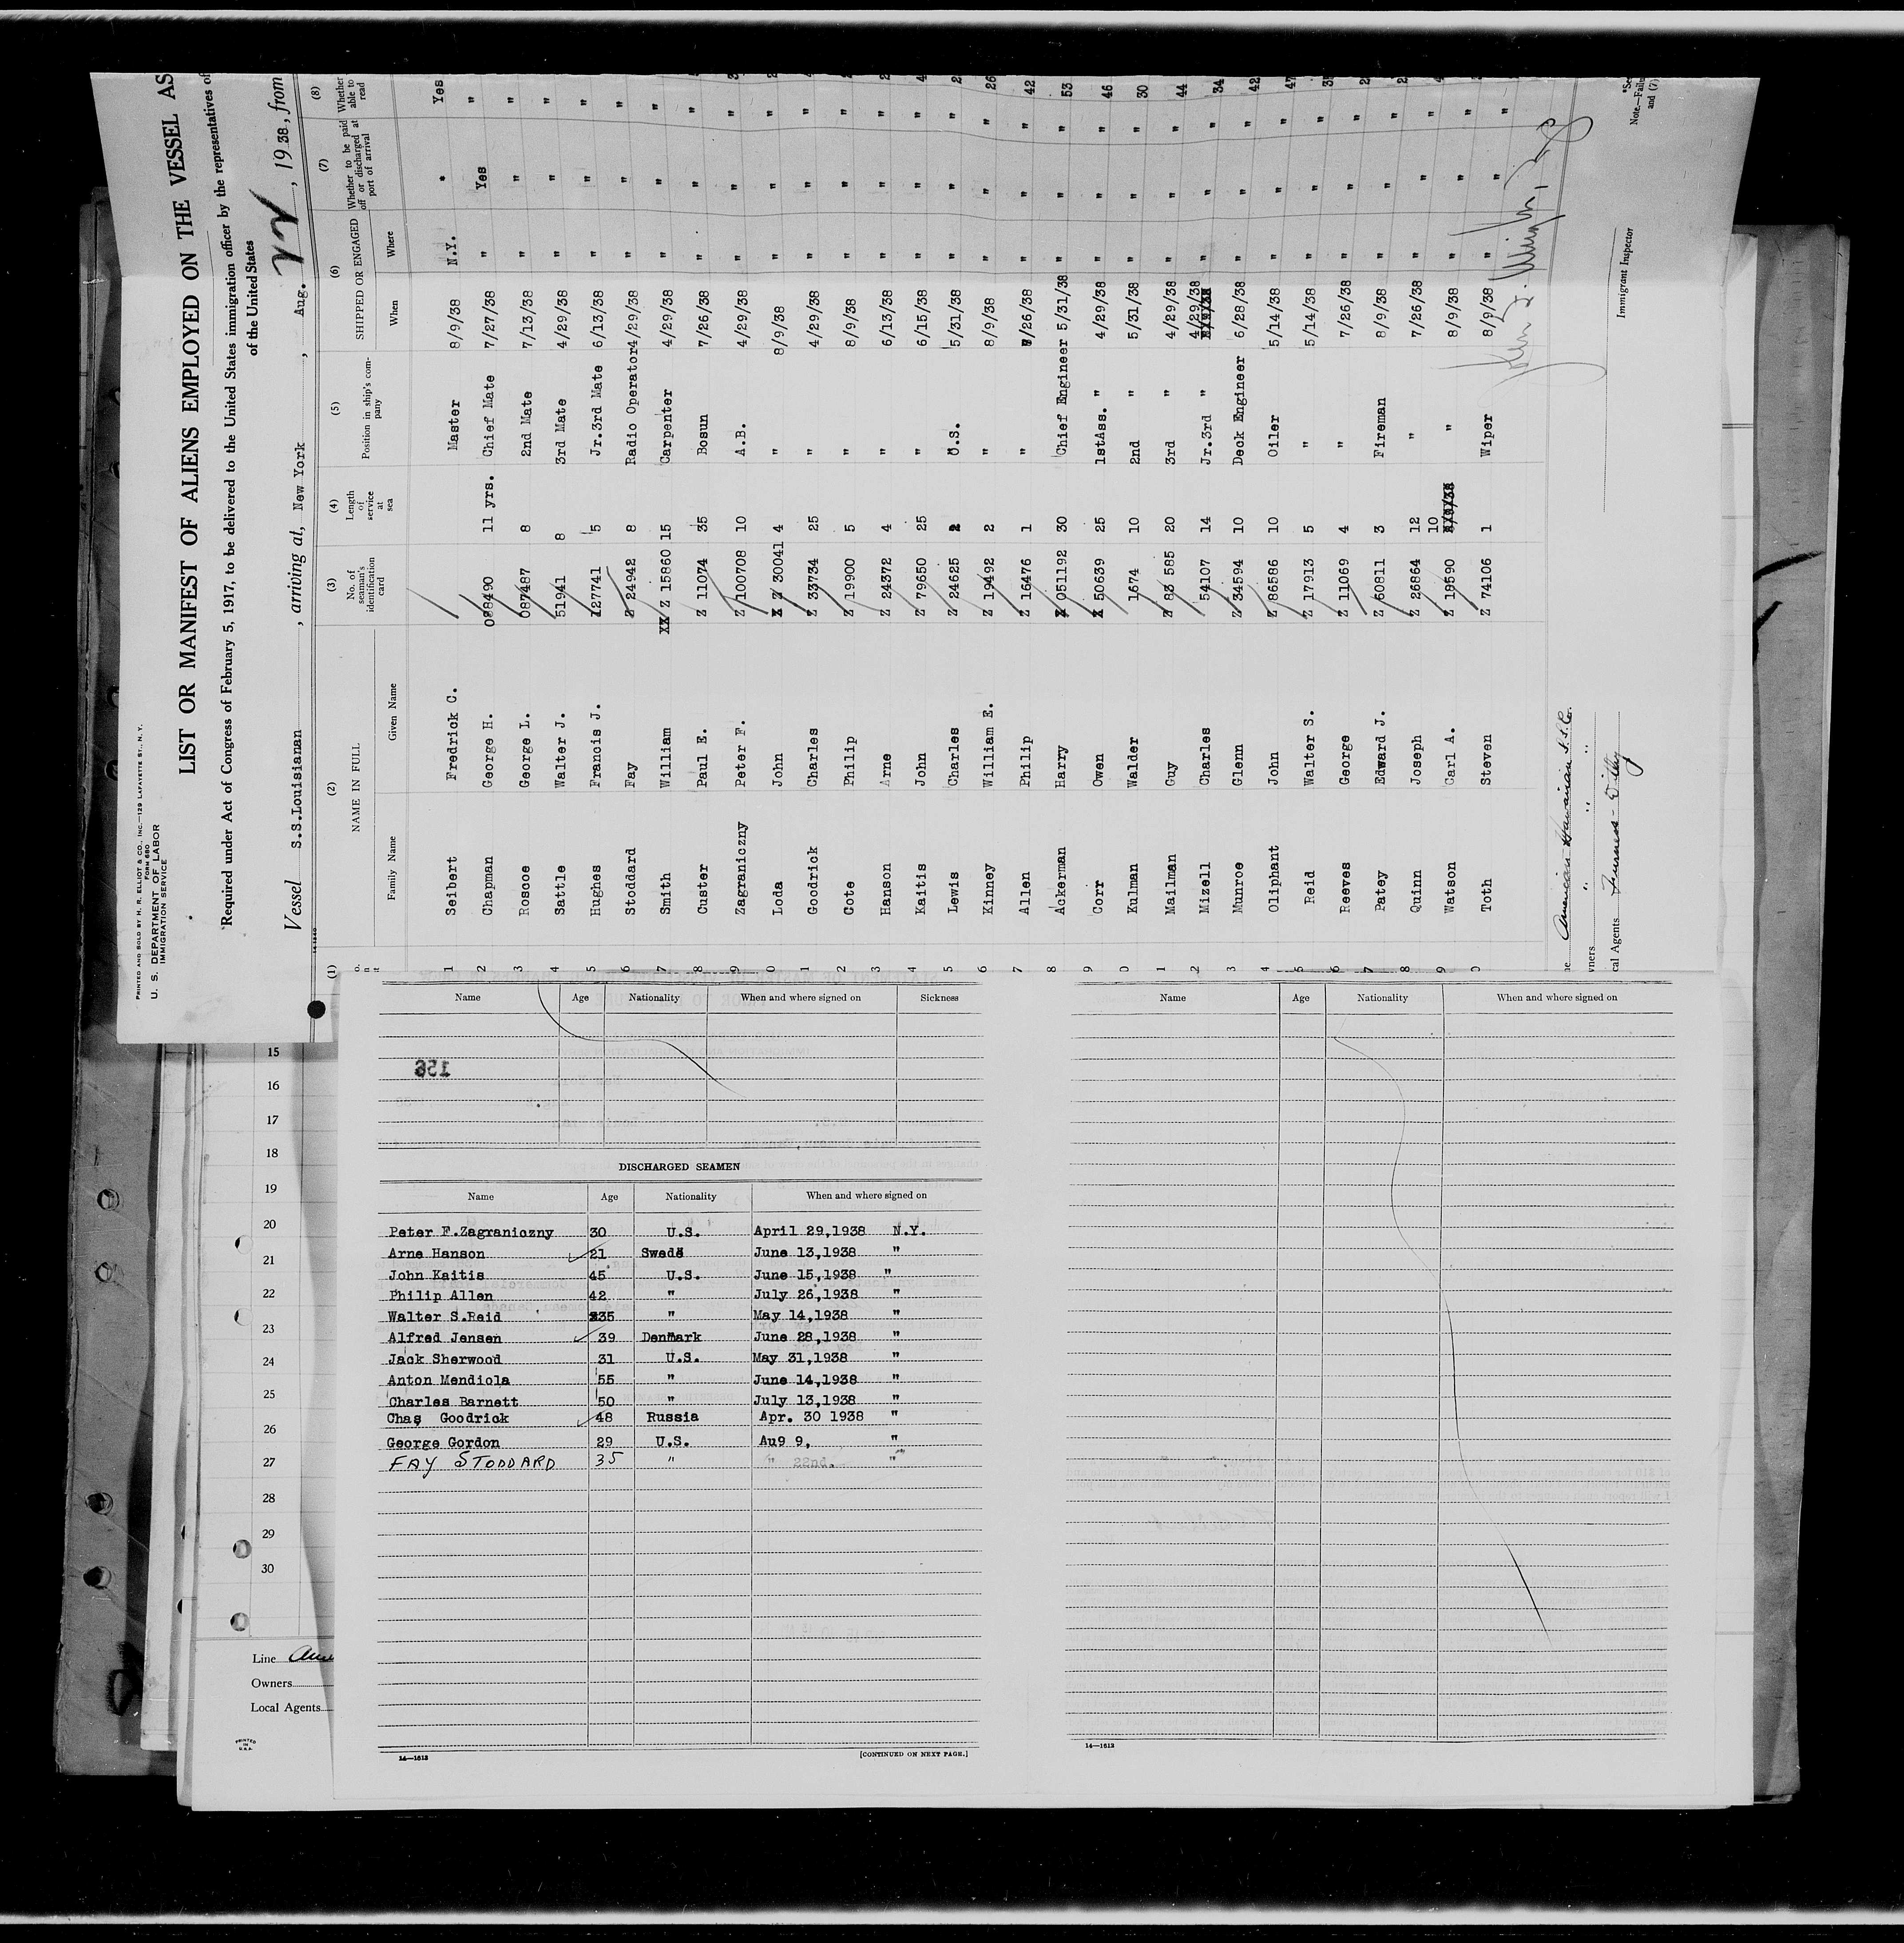 PRINTED AND SOLD BY H. R. ELLIOT & CO., INC.—129 LAFAYETTE ST., N. Y.
FORM 680
U. S. DEPARTMENT OF LABOR
IMMIGRATION SERVICE
LIST OR MANIFEST OF ALIENS EMPLOYED ON THE VESSEL AS
Required under Act of Congress of February 5, 1917, to be delivered to the United States immigration officer by the representatives of
of the United States
Vessel S.S.Louisianan , arriving at, New York , Aug. , 1938, from
(1) (2) (3) (4) (5) (6) (7) (8)
NAME IN FULL No. of seaman's identification card Length of service at sea Position in ship's company SHIPPED OR ENGAGED Whether to be paid off or discharged at port of arrival Whether able to read
Family Name Given Name When Where
1 Seibert Fredrick C. Master 8/9/38 N.Y. * Yes
2 Chapman George H. 088490 11 yrs. Chief Mate 7/27/38 " Yes "
3 Roscoe George L. 087487 8 2nd Mate 7/13/38 " " "
4 Sattle Walter J. 51941 8 3rd Mate 4/29/38 " " "
5 Hughes Francis J. 127741 5 Jr.3rd Mate 6/13/38 " " "
6 Stoddard Fay Z 24942 8 Radio Operator 4/29/38 " " "
7 Smith William XX Z 15860 15 Carpenter 4/29/38 " " "
8 Custer Paul E. Z 11074 35 Bosun 7/26/38 " " "
9 Zagraniczny Peter F. Z 100708 10 A.B. 4/29/38 " " "
0 Loda John Z 30041 4 " 8/9/38 " " "
1 Goodrick Charles Z 33734 25 " 4/29/38 " " "
2 Cote Philip Z 19900 5 " 8/9/38 " " "
3 Hanson Arne Z 24372 4 " 6/13/38 " " "
4 Kaitis John Z 79650 25 " 6/15/38 " " "
5 Lewis Charles Z 24625 2 O.S. 5/31/38 " " "
6 Kinney William E. Z 19492 2 " 8/9/38 " " " 26
7 Allen Philip Z 16476 1 " 7/26/38 " " " 42
8 Ackerman Harry 051192 30 Chief Engineer 5/31/38 " " " 53
9 Corr Owen 50639 25 1stAss. " 4/29/38 " " " 46
0 Kulman Walder 1674 10 2nd " 5/31/38 " " " 30
1 Mailman Guy Z 83 585 20 3rd " 4/29/38 " " " 44
2 Mizell Charles 54107 14 Jr.3rd " 4/29/38 " " " 34
3 Munroe Glenn Z 34594 10 Deck Engineer 6/28/38 " " " 42
4 Oliphant John Z 86586 10 Oiler 5/14/38 " " " 47
5 Reid Walter S. Z 17913 5 " 5/14/38 " " "
6 Reeves George Z 11069 4 " 7/26/38 " " "
7 Patey Edward J. Z 60811 3 Fireman 8/9/38 " " "
8 Quinn Joseph Z 26864 12 " 7/26/38 " " "
9 Watson Carl A. Z 19590 10 " 8/9/38 " " "
0 Toth Steven Z 74106 1 Wiper 8/9/38 " " "
ne American Hawaiian S.S.Co.
wners " " "
cal Agents Furness-Withy
Immigrant Inspector
Note.—Failu
and (7)
Name Age Nationality When and where signed on Sickness
156
DISCHARGED SEAMEN
Name Age Nationality When and where signed on
Peter F.Zagraniczny 30 U.S. April 29,1938 N.Y.
Arne Hanson 21 Swede June 13,1938 "
John Kaitis 45 U.S. June 15,1938 "
Philip Allen 42 " July 26,1938 "
Walter S.Reid 35 " May 14,1938 "
Alfred Jensen 39 Denmark June 28,1938 "
Jack Sherwood 31 U.S. May 31,1938 "
Anton Mendiola 55 " June 14,1938 "
Charles Barnett 50 " July 13,1938 "
Chas Goodrick 48 Russia Apr. 30 1938 "
George Gordon 29 U.S. Au9 9, "
FAY STODDARD 35 " " 22nd. "
14—1612
[CONTINUED ON NEXT PAGE.]
Name Age Nationality When and where signed on
14—1612
15
16
17
18
19
20
21
22
23
24
25
26
27
28
29
30
Line Ame
Owners
Local Agents
PRINTED
IN
U.S.A.